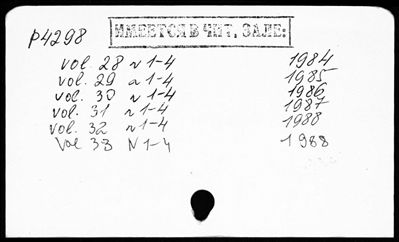 P4298
ИМЕЕТСЯ В ЧИТ. ЗАЛЕ:
vol. 28 N 1-4 1984
vol. 29 N 1-4 1985
vol. 30 N 1-4 1986
vol. 31 N 1-4 1987
vol. 32 N 1-4 1988
vol 33 N 1-4 1988